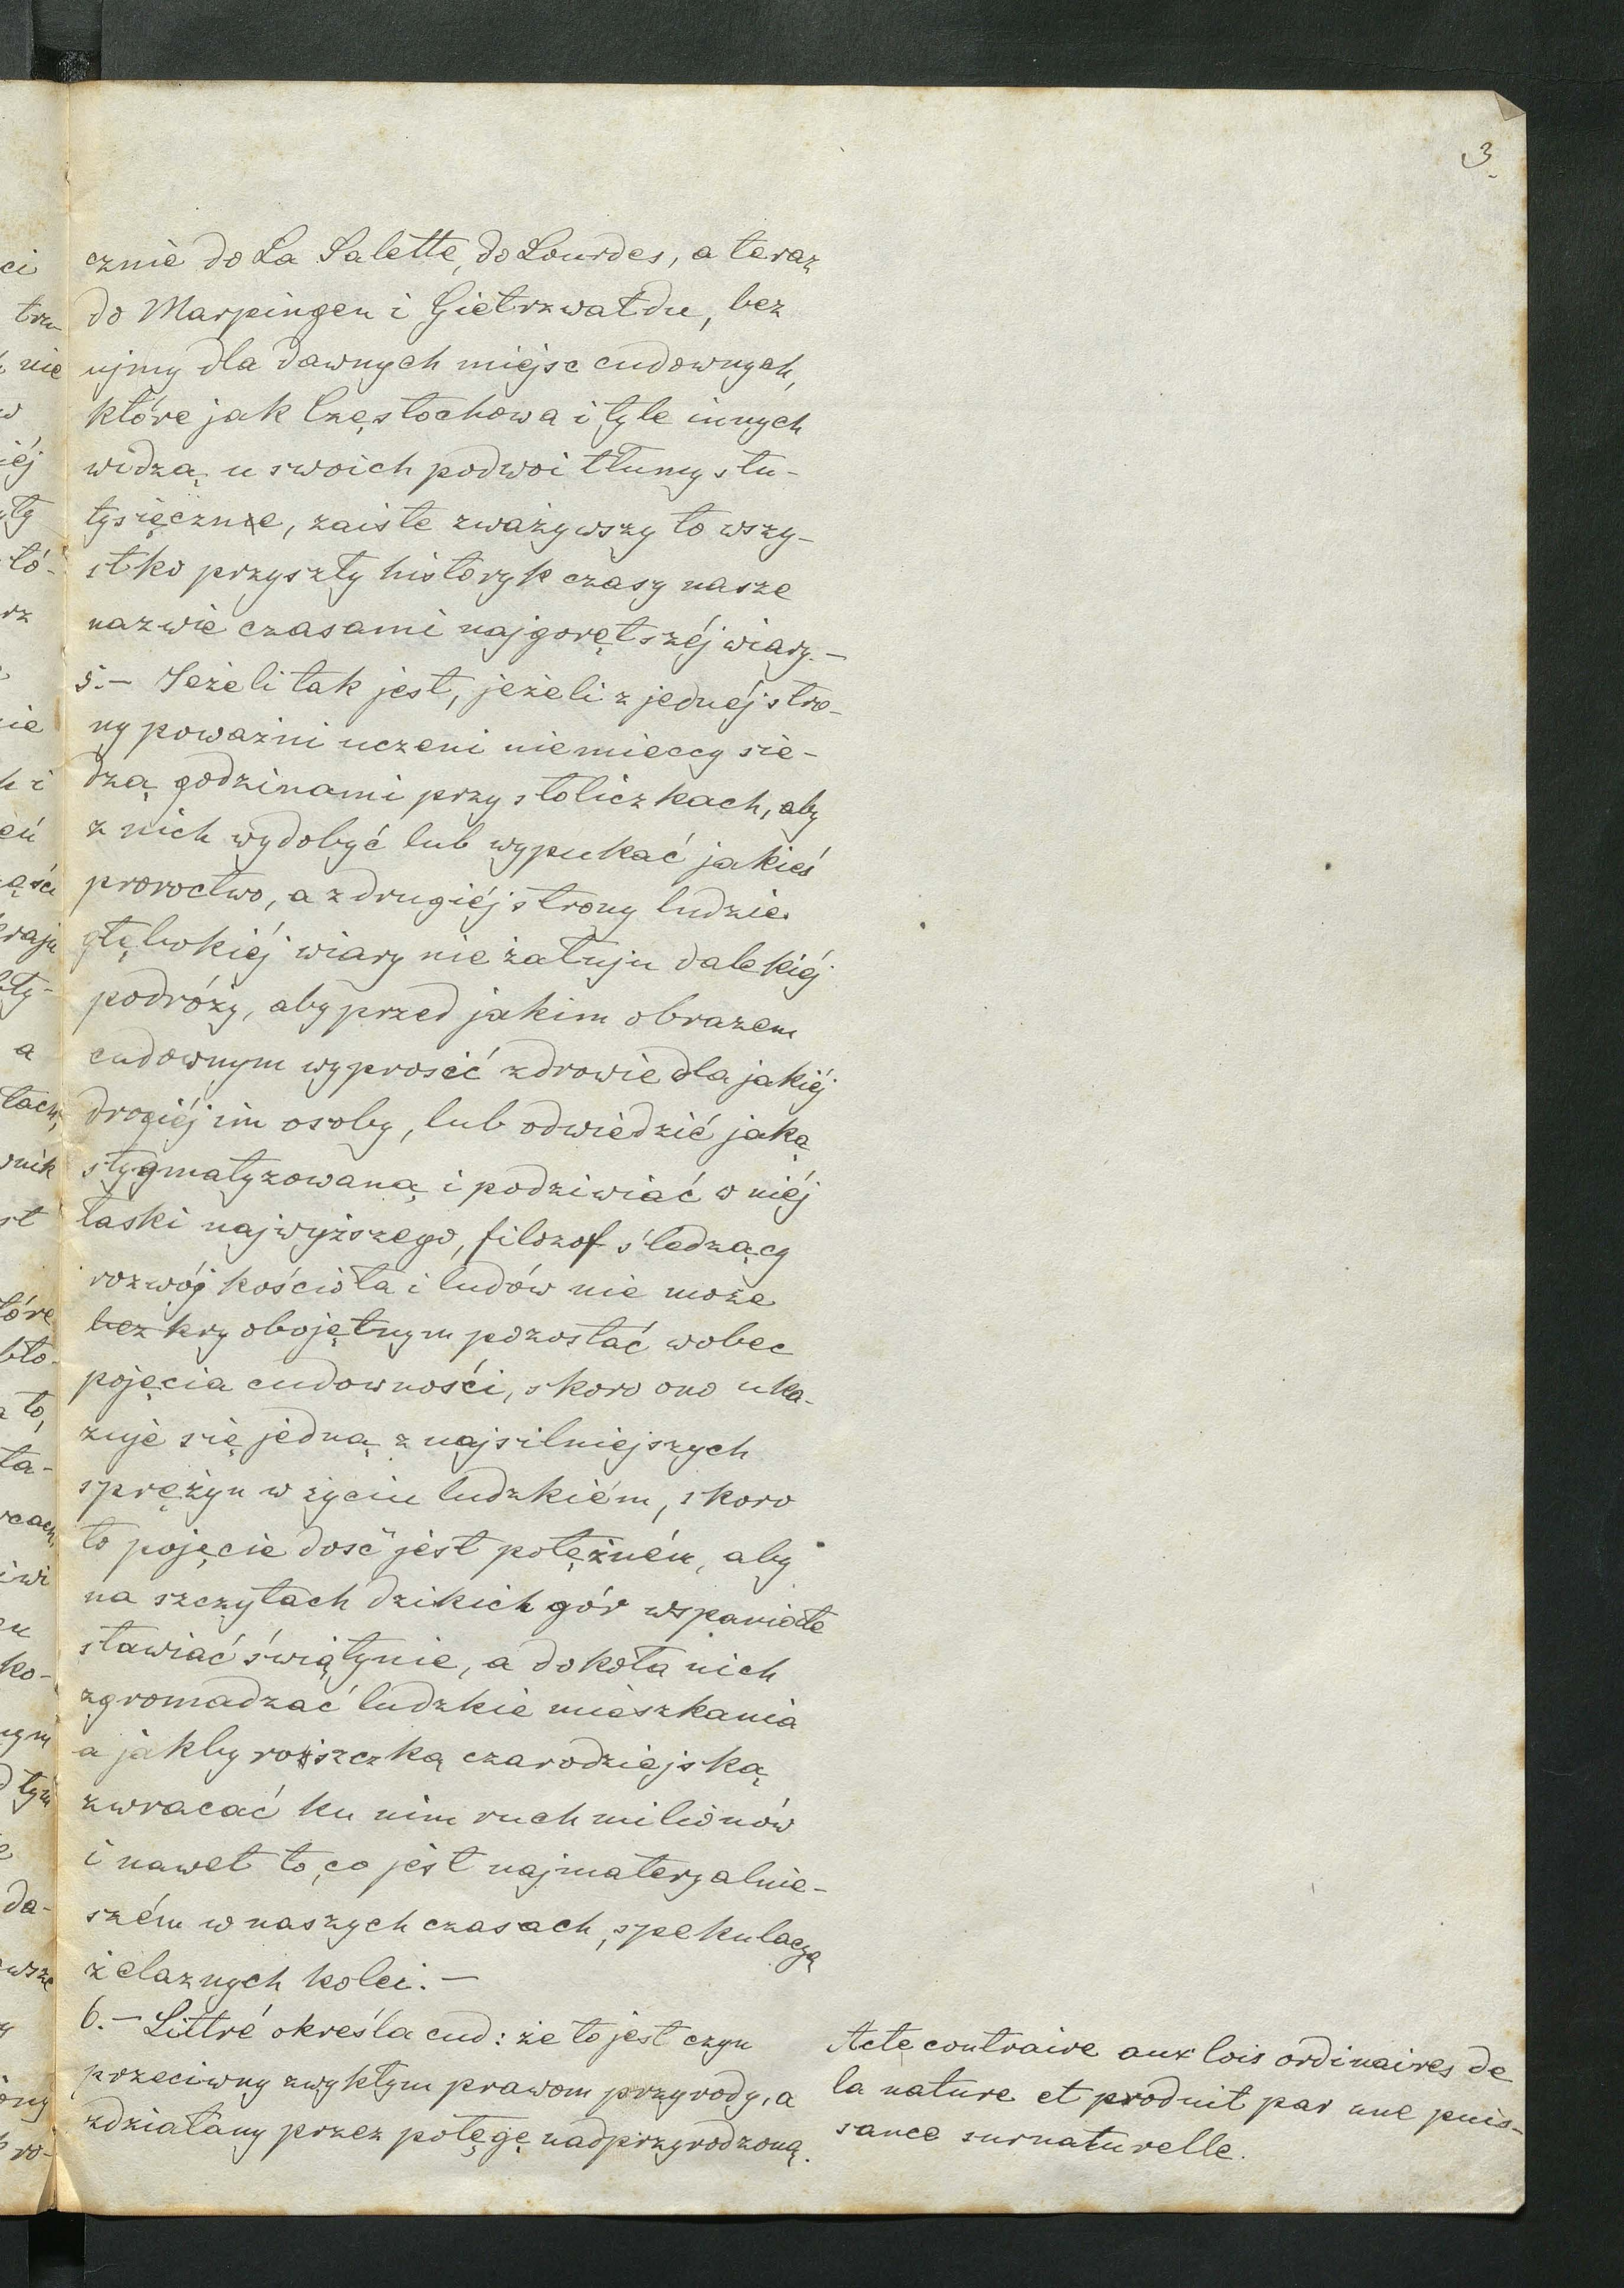 3.
cznie do La Salette, do Lourdes, a teraz
do Marpingen i Gietrzwałdu, bez
ujmy dla dawnych miejsc cudownych,
które jak Częstochowa i tyle innych
widzą u swoich podwoi tłumy stu-
tysięczne, zaiste zważywszy to wszy-
stko przyszły historyk czasy nasze
nazwie czasami najgorętszéj wiary. —
5. — Jeżeli tak jest, jeżeli z jednéj stro-
ny poważni uczeni niemieccy sie-
dzą godzinami przy stoliczkach, aby
z nich wydobyć lub wypukać jakieś
proroctwo, a z drugiéj strony ludzie
głębokiéj wiary nie żałują dalekiéj
podróży, aby przed jakim obrazem
cudownym wyprosić zdrowie dla jakiéj
drogiéj im osoby, lub odwiedzić jaką
stygmatyzowaną i podziwiać w niéj
łaski najwyższego, filozof śledzący
rozwój kościoła i ludów nie może
bez kry obojętnym pozostać wobec
pojęcia cudowności, skoro ono uka-
zuje się jedną z najsilniejszych
sprężyn w życiu ludzkiém, skoro
to pojęcie dość jest potężném, aby
na szczytach dzikich gór wspaniałe
stawiać świątynie, a dokoła nich
zgromadzać ludzkie mieszkania
a jakby rószczką czarodziejską
zwracać ku nim ruch milionów
i nawet to, co jest najmateryalnie-
szém w naszych czasach, spekulacyą
żelaznych kolei. —
6. — Littré określa cud: że to jest czyn
przeciwny zwykłym prawom przyrody, a
zdziałany przez potęgę nadprzyrodzoną.
Acte contraire aux lois ordinaires de
la nature et produit par une puis-
sance surnaturelle.